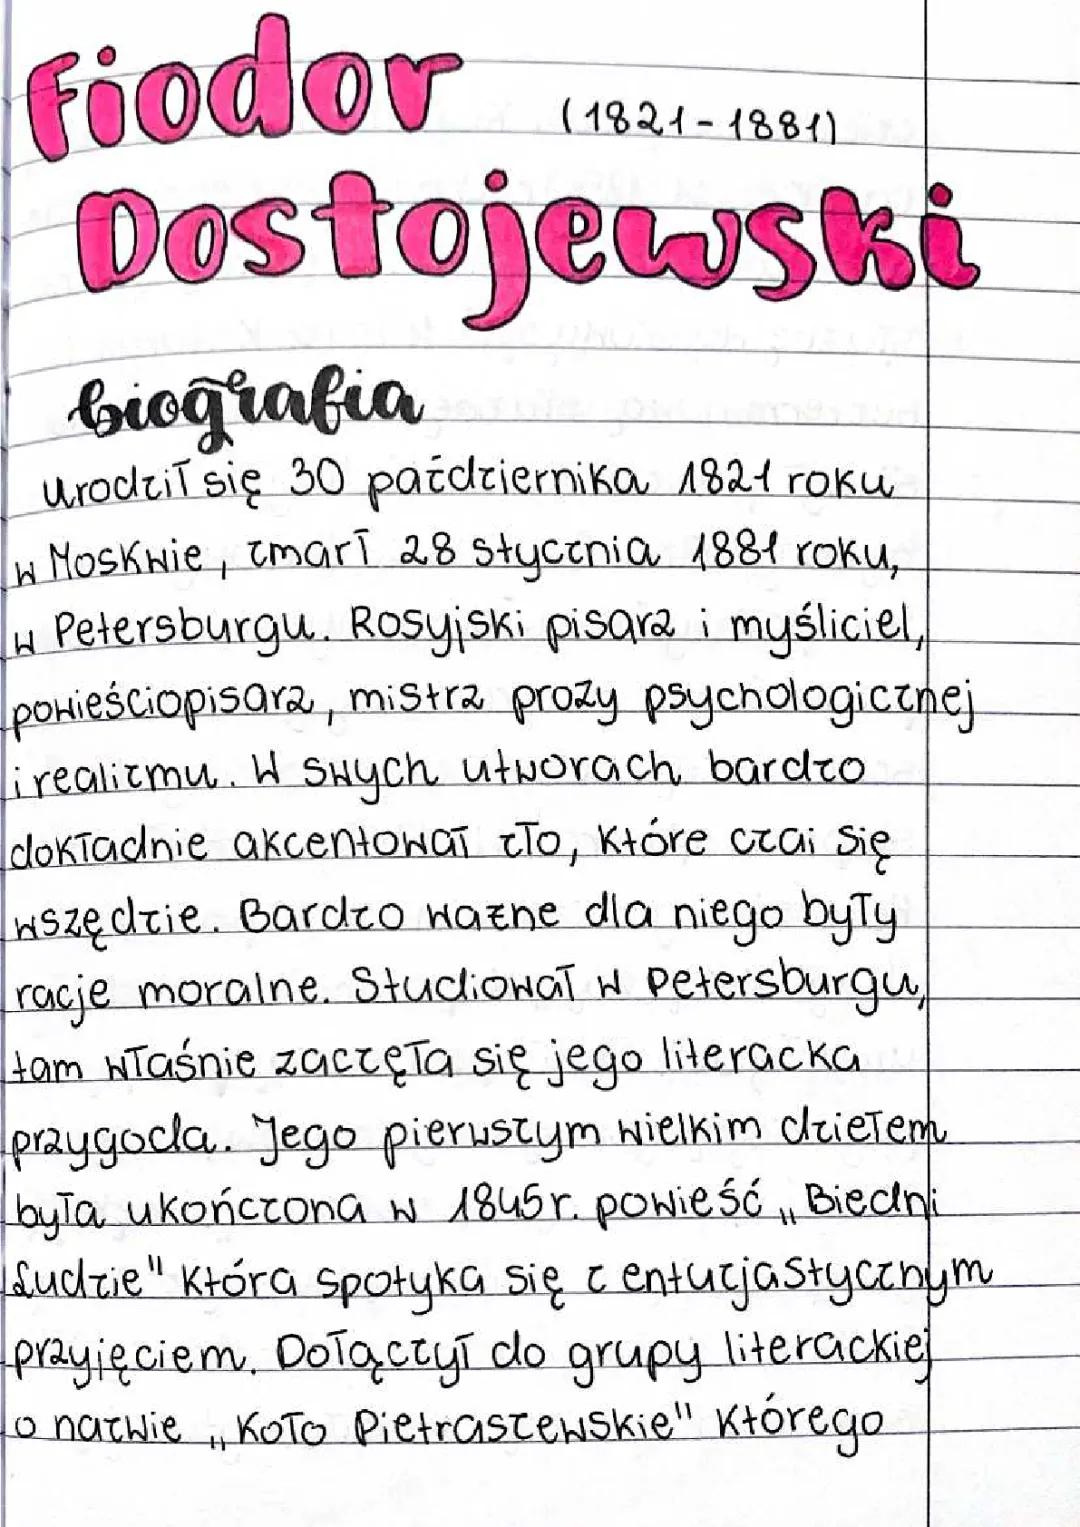 Fiodor
(1821-1881)
Dostojewski
biografia
urodził się 30 października 1821 roku
w Moskwie, zmarł 28 stycznia 1881 roku,
w Petersburgu. Rosyjski pisarz i myśliciel,
powieściopisarz, mistrz prozy psychologicznej
i realizmu. W swych utworach bardzo
dokładnie akcentował zło, które czai się
wszędzie. Bardzo ważne dla niego były
racje moralne. Studiował w Petersburgu,
tam właśnie zaczęła się jego literacka
przygoda. Jego pierwszym wielkim dziełem
była ukończona w 1845r. powieść „Biedni
Ludzie" która spotyka się z entuzjastycznym
przyjęciem. Dołączył do grupy literackiej
o nazwie „Koło Pietraszewskie" którego